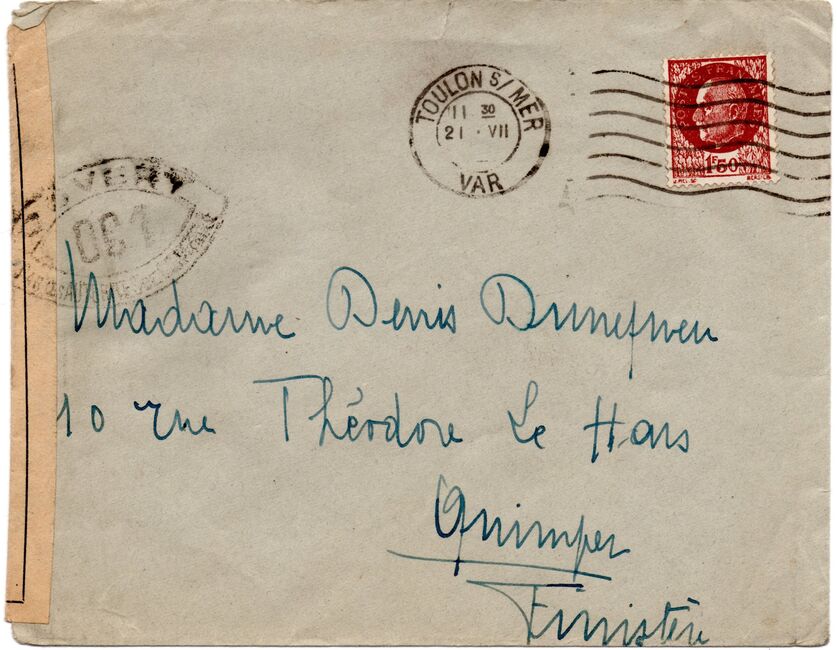 TOULON S/MER
11 30
21 · VII
VAR
POSTES
1F50
OUVERT
061
Madame Denis
10 rue Théodore Le Hars
Quimper
Finistère